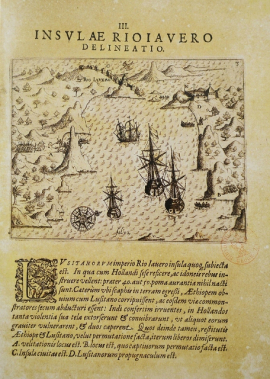 III.
INSVLAE RIO IAVERO
DELINEATIO.
LVSITANORVM imperio Rio Iavero insula quoq; subiecta
est. In qua cum Hollandi se refrescere, ac idoneis rebus in-
struere velint: præter 40. aut 50. poma aurantia nihil nacti
sunt. Cæterum ubi scaphis in terram egressi, Æthiopem ob-
viam cum Lusitano corripuissent, ac eosdem via commun-
stratores secum abducturi essent: Indi confertim erruentes, in Hollandos
tanta violentia sua tela exserserunt & conviderunt, ut aliquot eorum
graviter vulnerarent, & duos caperent. Quos deinde tamen, restitutis
Æthiope & Lusitano, velut permutatione facta, iterum liberos dimiserunt.
A. velitationis locus est. B. locus est, quo captivorum permutatio facta est.
C. insula civitas est. D. Lusitanorum propugnaculum est.